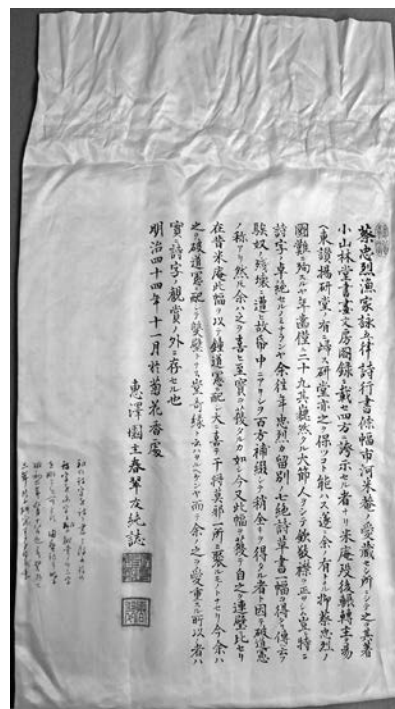 蔡忠烈漁家詠五律詩行書條幅市河米庵ノ愛蔵セル所ニシテ之ヲ其著
小山林堂書畫文房圖錄ニ載セ四方ニ誇示セル者ナリ米庵歿後輾轉主ヲ易
ヘ東讃揚研堂ノ有ニ歸ス研堂亦之ヲ保ツコト能ハス遂ニ余ノ有トナル抑蔡忠烈ノ
國難ニ殉スルヤ年齒僅ニ二十九其巍然タル大節人ヲシテ欽發襟ヲ正サシム豈特ニ
詩字ノ卓絶セルノミナランヤ余往年忠烈カ留別ノ七絶詩草書一幅ヲ得タリ傳云フ
奴ノ残壊ニ遭ヒ故帋中ニアリシヲ百方補綴シテ稍全キヲ得タル者ト因テ破道憲
ノ称アリ然ルニ余ハ之ヲ喜ヒ至寳ヲ獲タルカ如シ今又此幅ヲ獲テ自之ヲ連璧ニ比セリ
在昔米庵此幅ヲ以テ鐘道憲ニ配シ大ニ喜テ干将莫邪一所ニ聚ルモノトセリ今余ハ
之ヲ破道憲ニ配シテ雙璧トス豈奇縁ト云ハサルヘケンヤ而テ余ノ之ヲ愛重スル所以ノ者ハ
實ニ詩字ノ觀賞ノ外ニ存セル也
明治四十四年十一月於菊花香處
惠澤園主春翠友純誌